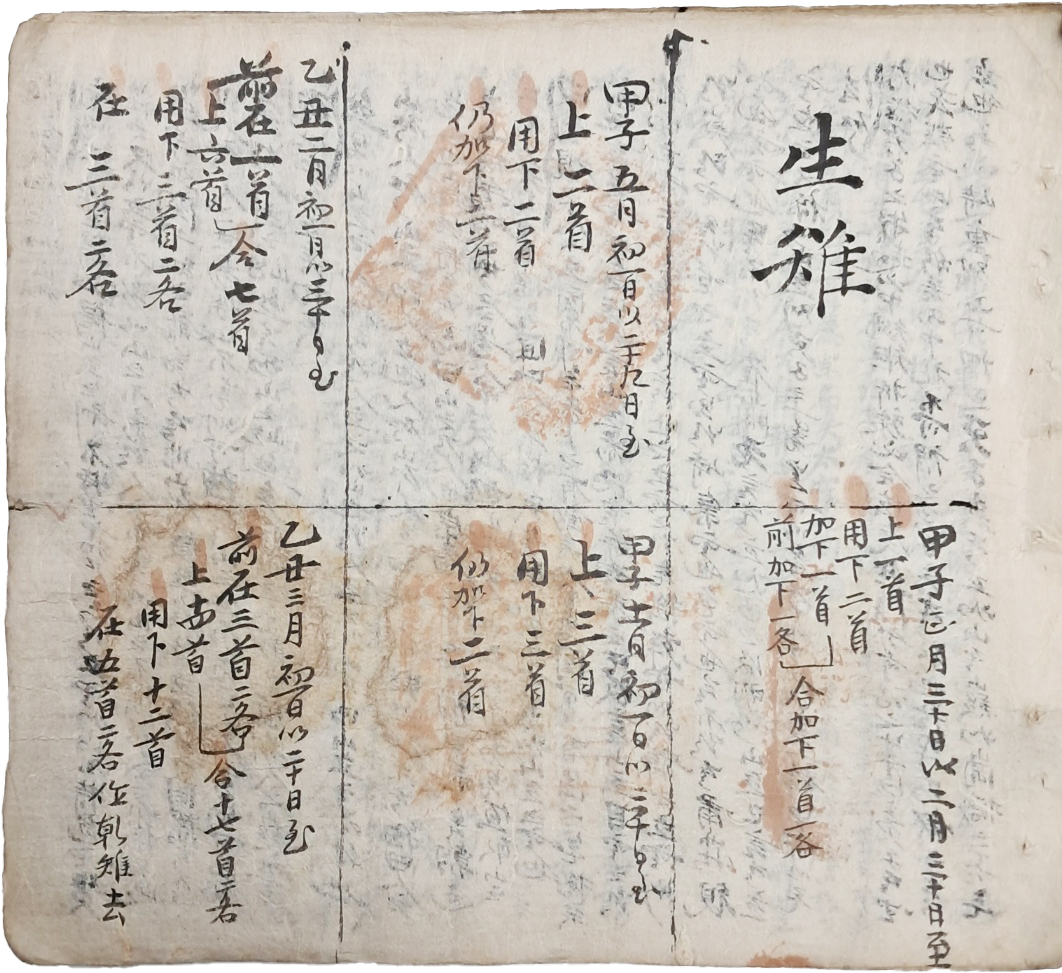 生雉
甲子正月三十日以二月三十日至
上一首
用下二首
加下一首
前加下一各
合加下一首一各
甲子五月初一日以二十九日至
上二首
用下二首
仍加下二首
甲子十一月初一日以三十日至
上三首
用下三首
仍加下二首
乙丑二月初一日以三十日至
前在一首
上六首
合七首
用下三首二各
在三首二各
乙丑三月初一日以二十日至
前在三首二各
合十七首二各
用下十二首
在五首二各作乾雉去